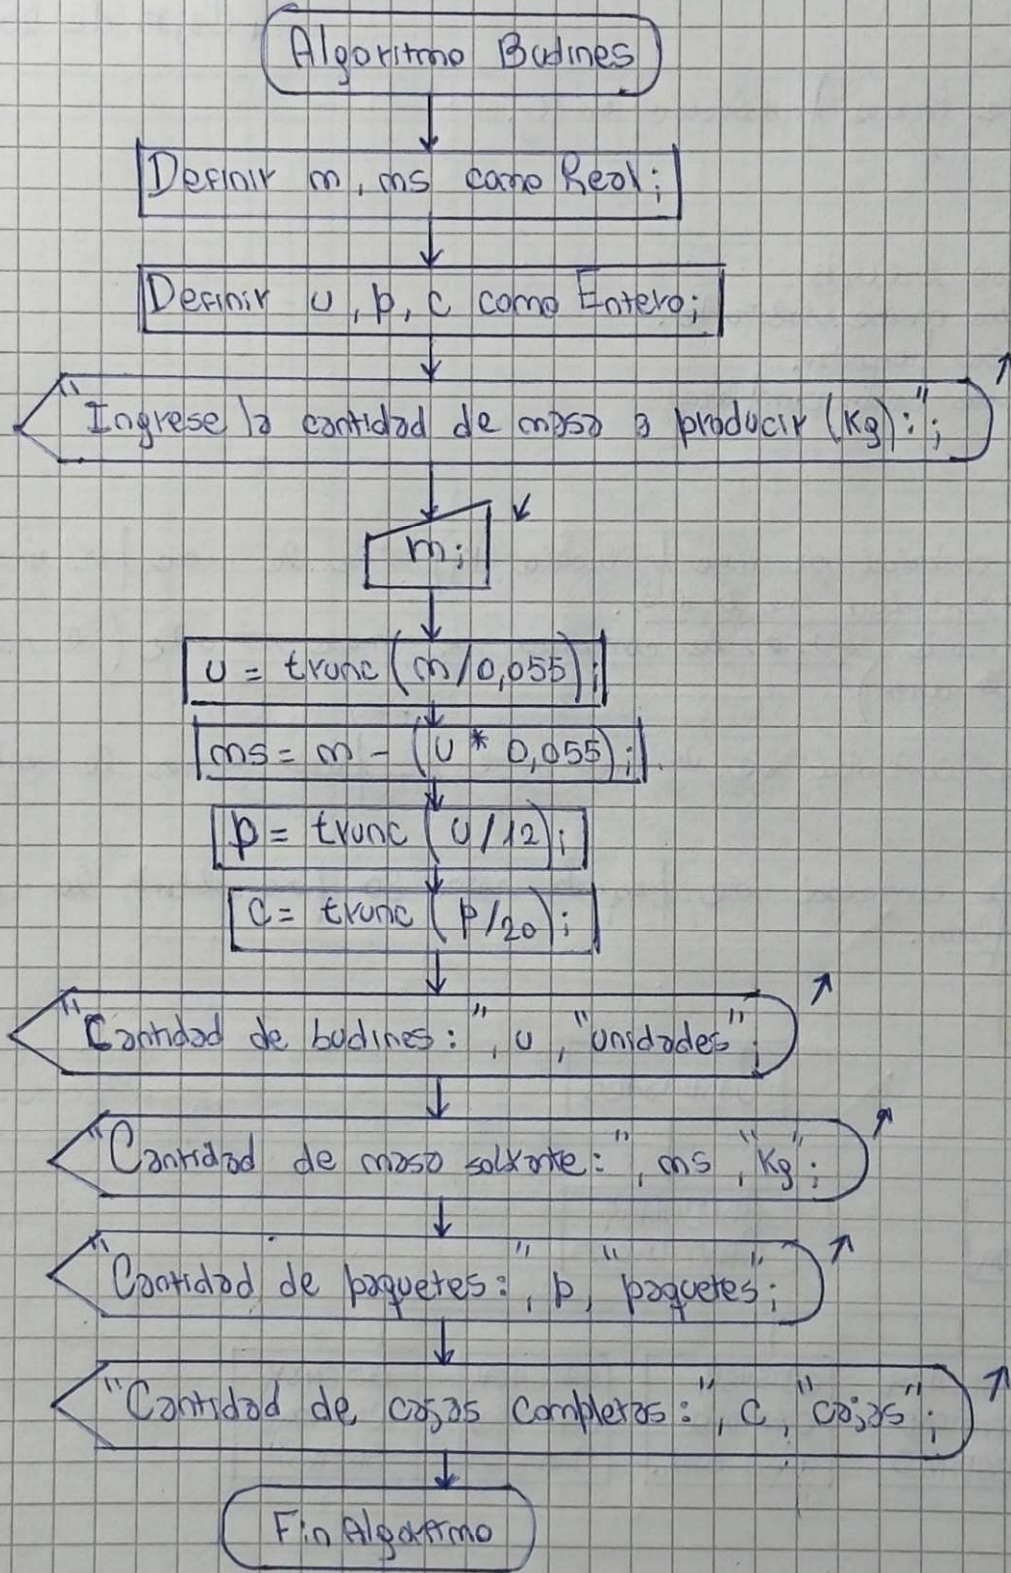 Algoritmo Budines
Definir m, ms como Real;
Definir u, p, c como Entero;
"Ingrese la cantidad de masa a producir (Kg):";
m;
u = trunc(m/0,055);
ms = m - (u * 0,055);
p = trunc(u/12);
c = trunc(p/20);
"Cantidad de budines:", u, "unidades";
"Cantidad de masa sobrante:", ms, "Kg";
"Cantidad de paquetes:", p, "paquetes";
"Cantidad de cajas completas:", c, "cajas";
FinAlgoritmo